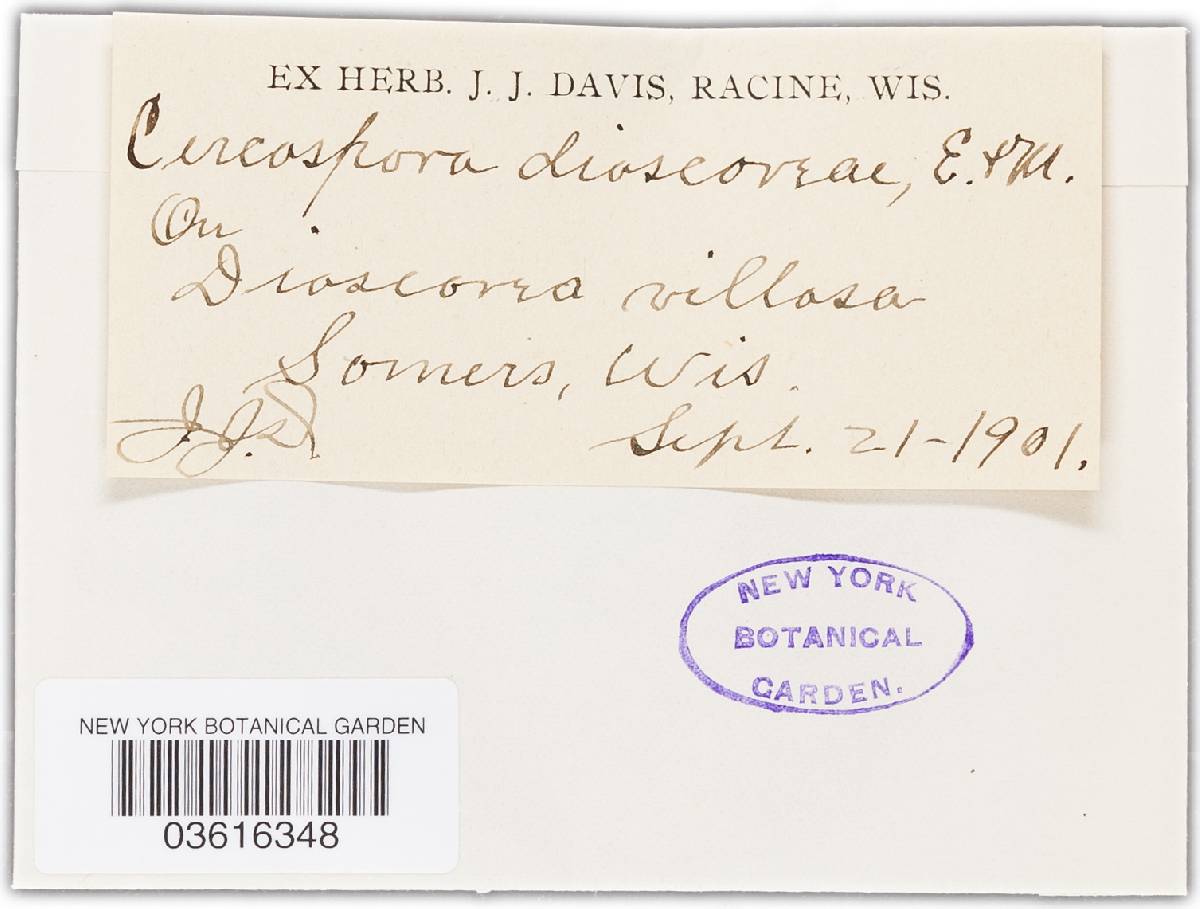 EX HERB. J. J. DAVIS, RACINE, WIS.
Cercospora dioscoreae, E. & M.
On
Dioscorea villosa
Somers, Wis.
J.J.D. Sept. 21-1901.
NEW YORK
BOTANICAL
GARDEN.
NEW YORK BOTANICAL GARDEN
03616348